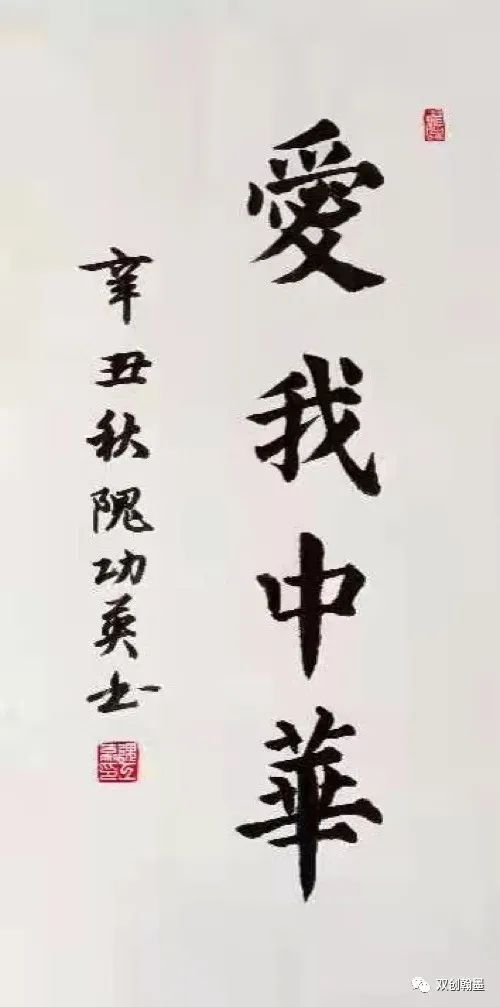 愛我中華
辛丑秋隗功英书
双创翰墨